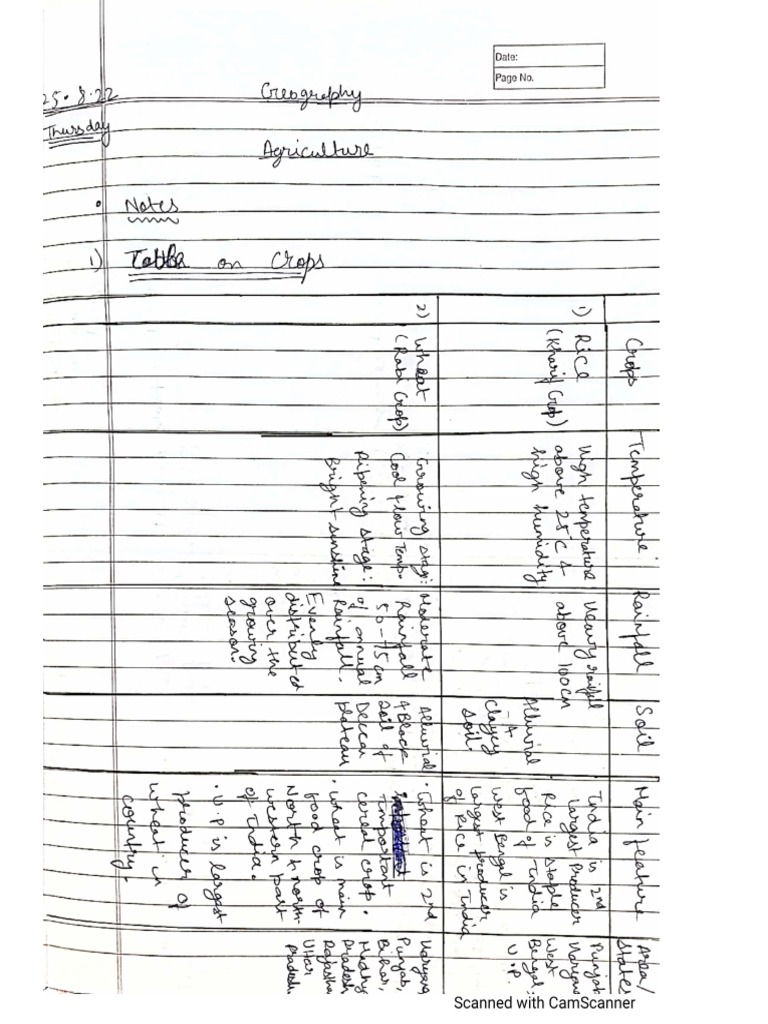 Date:
Page No.
25.8.22
Geography
Thursday
Agriculture
Notes
1) Table on Crops
Crops
Temperature
Rainfall
Soil
Main feature
Area/
States
1) Rice
(Kharif Crop)
High temperature
above 25°C &
high humidity
Heavy
above 100cm
Alluvial
&
clayey
soil.
India is 2nd
largest Producer
Rice is staple
food of India
West Bengal is
largest producer
of Rice in India
Punjab
Haryana
West
Bengal,
U.P.
2) Wheat
(Rabi Crop)
Growing stag:
Cool & low Temp.
Ripening stage:
Bright sunshine
Moderate
Rainfall
50-75cm
of annual
Rainfall.
Evenly
distributed
over the
growing
season.
Alluvial
& Black
soil of
Deccan
plateau
• Wheat is 2nd
Important
cereal crop.
• Wheat is main
food crop of
North & north
western part
of India.
• U.P is largest
producer of
wheat in
country.
Haryana
Punjab,
Bihar,
Madhy
Pradesh
Rajastha
Uttar
Pradesh.
Scanned with CamScanner